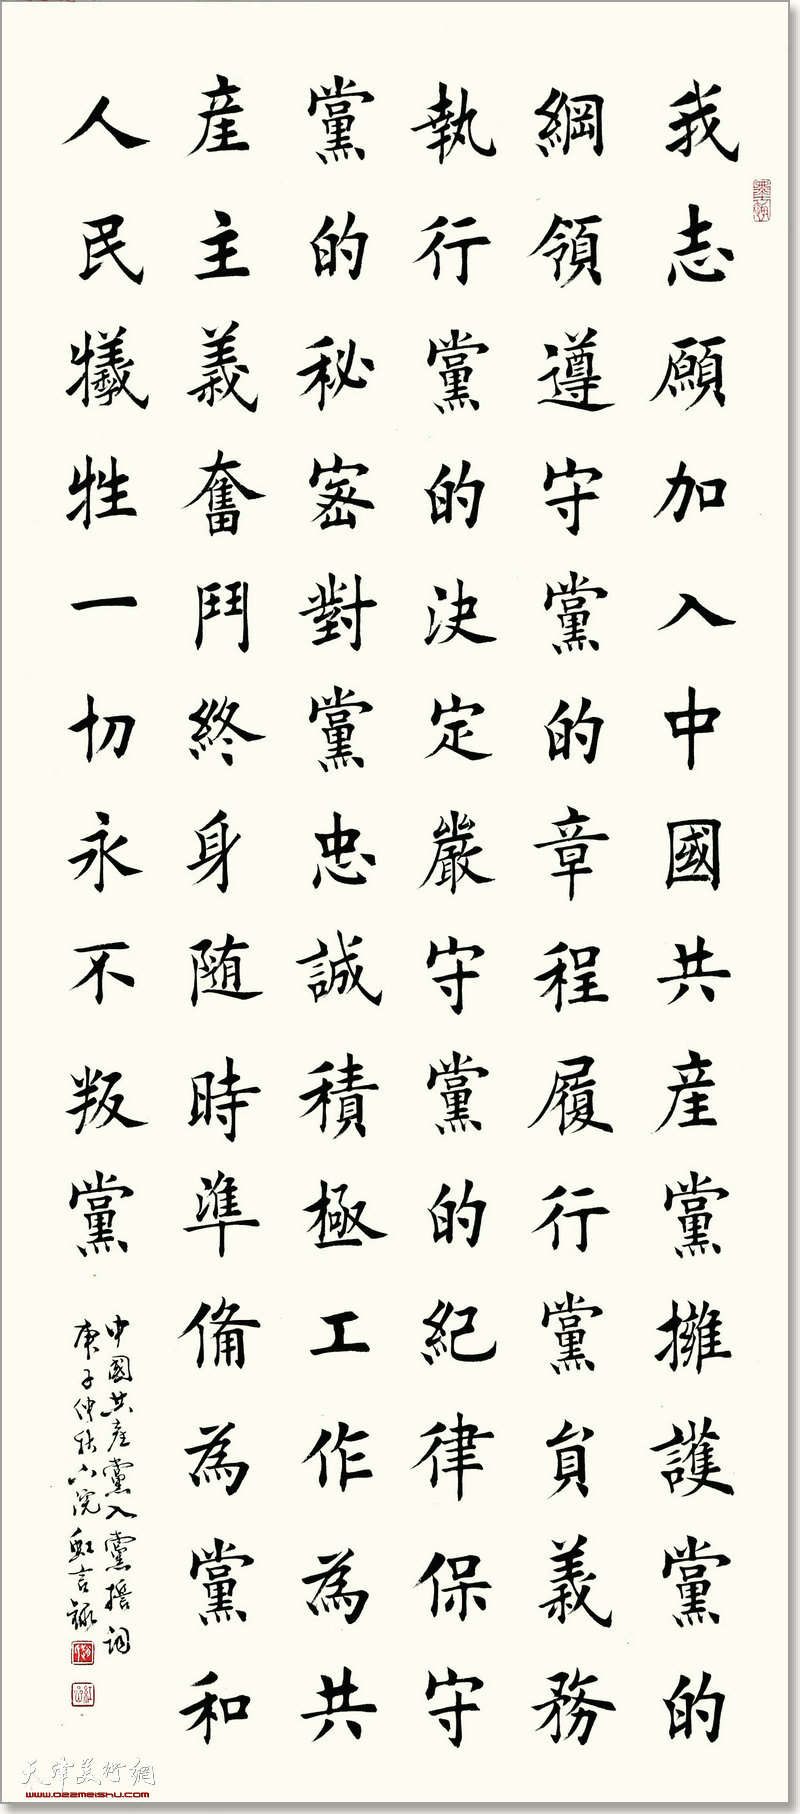 我志願加入中國共産黨擁護黨的
綱領遵守黨的章程履行黨員義務
執行黨的決定嚴守黨的紀律保守
黨的秘密對黨忠誠積極工作為共
産主義奮鬥終身随時準備為黨和
人民犧牲一切永不叛黨
中國共產黨入黨誓詞
庚子仲秋
天津美術網
www.022meishu.com